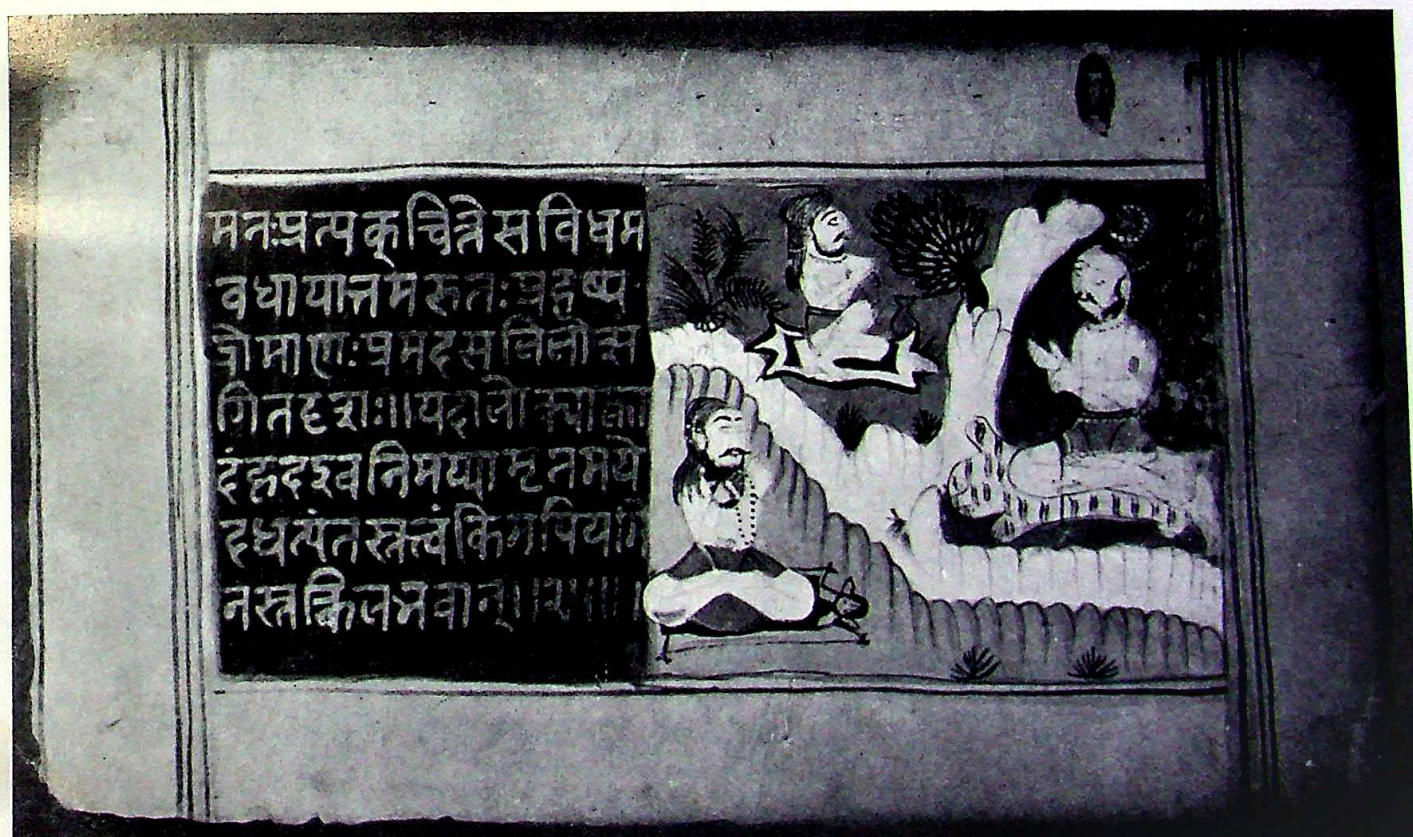 मनःप्रत्यक्चित्तेसविधम
वधायात्तमरुतःप्रहृष्य
द्रोमाणःप्रमदसलिलोत्स
गितदृशः॥यदालोक्याह्ला
दंह्रदइवनिमज्यामृतमये
दधत्यंतस्तत्वंकिमपियमि
नस्तत्किलभवान्॥